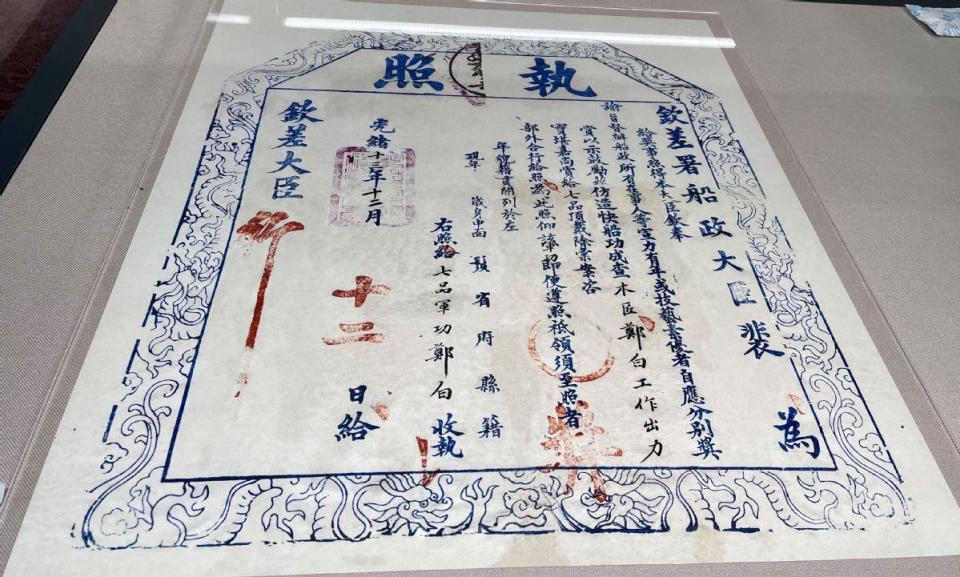 執照
欽差署船政大臣裴 為
給獎事照得本大臣欽奉
諭旨督辦船政所有在事人等宣力有年或技藝素優者自應分別獎
賞以示鼓勵茲仿造快船功成查木匠鄭白工作出力
實堪嘉尚賞給七品頂戴除彙案咨
部外合行給照為此照仰該即便遵照祗領須至照者
年貌籍貫開列於左
歲身中面 鬚 省府縣籍
右照給七品軍功鄭白收執
光緒十三年十二月十二日給
欽差大臣